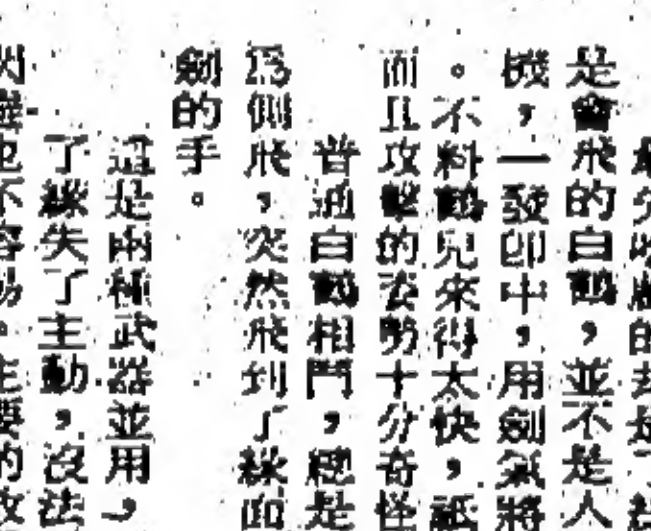 是會飛的白鶴，並不是人
機，一發即中，用劍氣將
。不料鶴兒來得太快，祇
而且攻擊的姿勢十分奇怪
普通白鶴相鬥，總是
為側飛，突然飛到了
劍的手。
這是兩種武器並用，
了 失了主動，沒法
也不容易。主要的攻